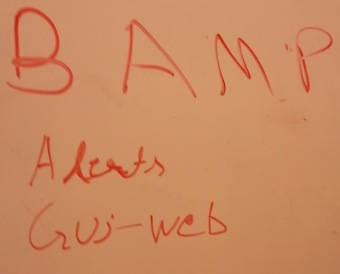 BAMP
Alerts
GUI-Web